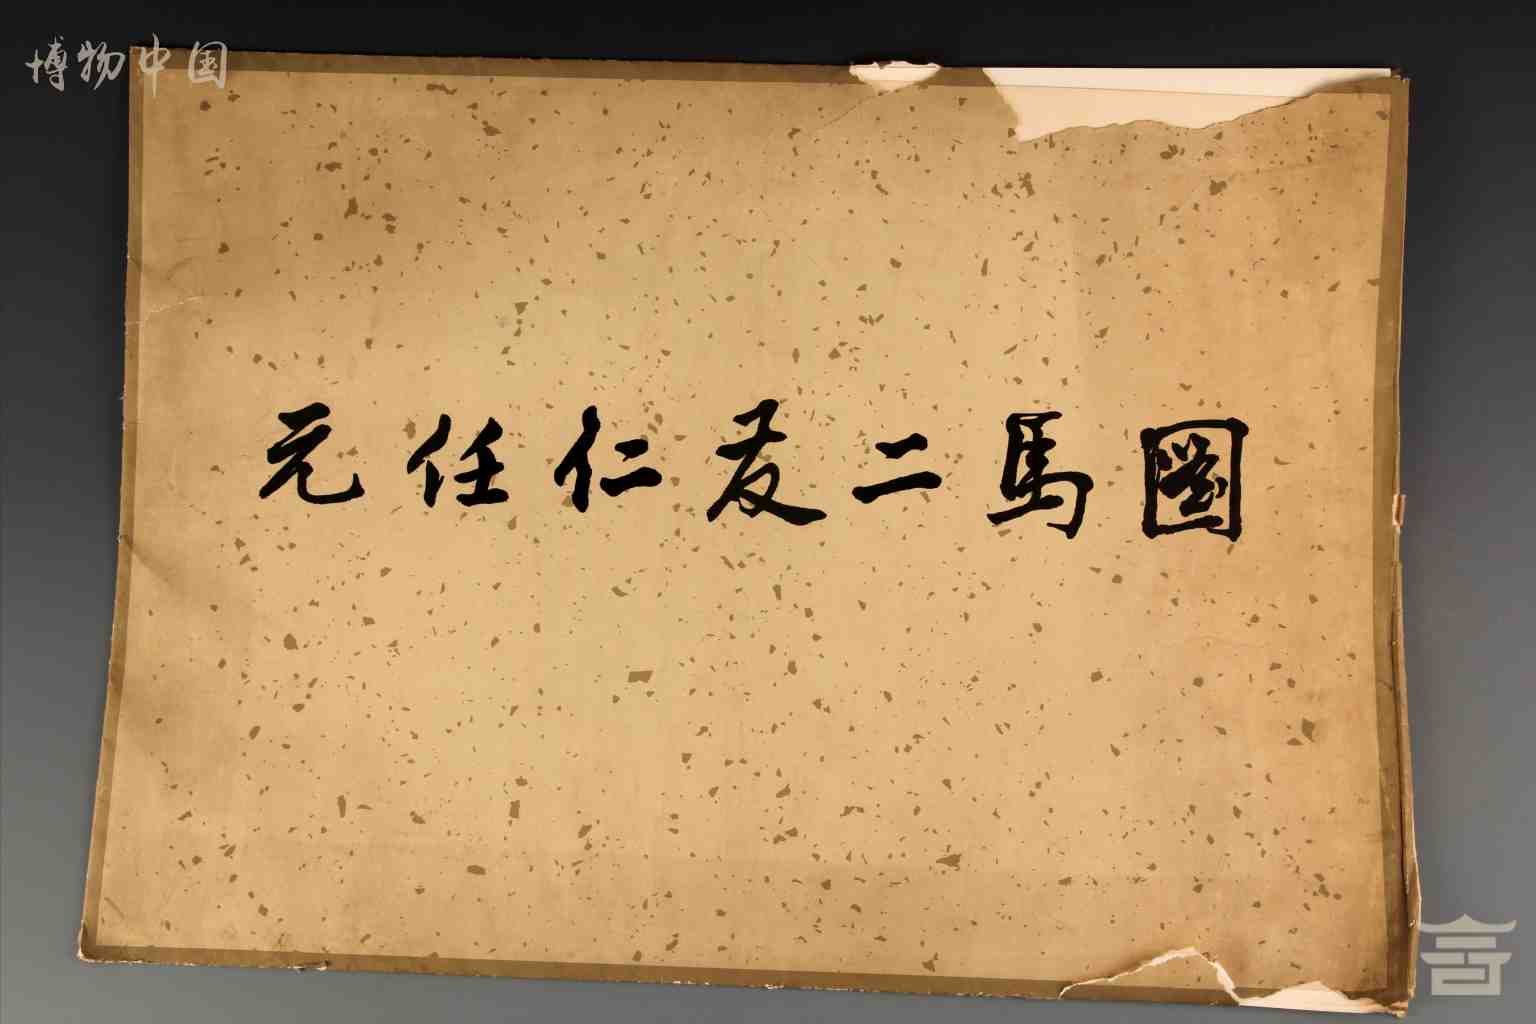 博物中国
元任仁发二馬圖